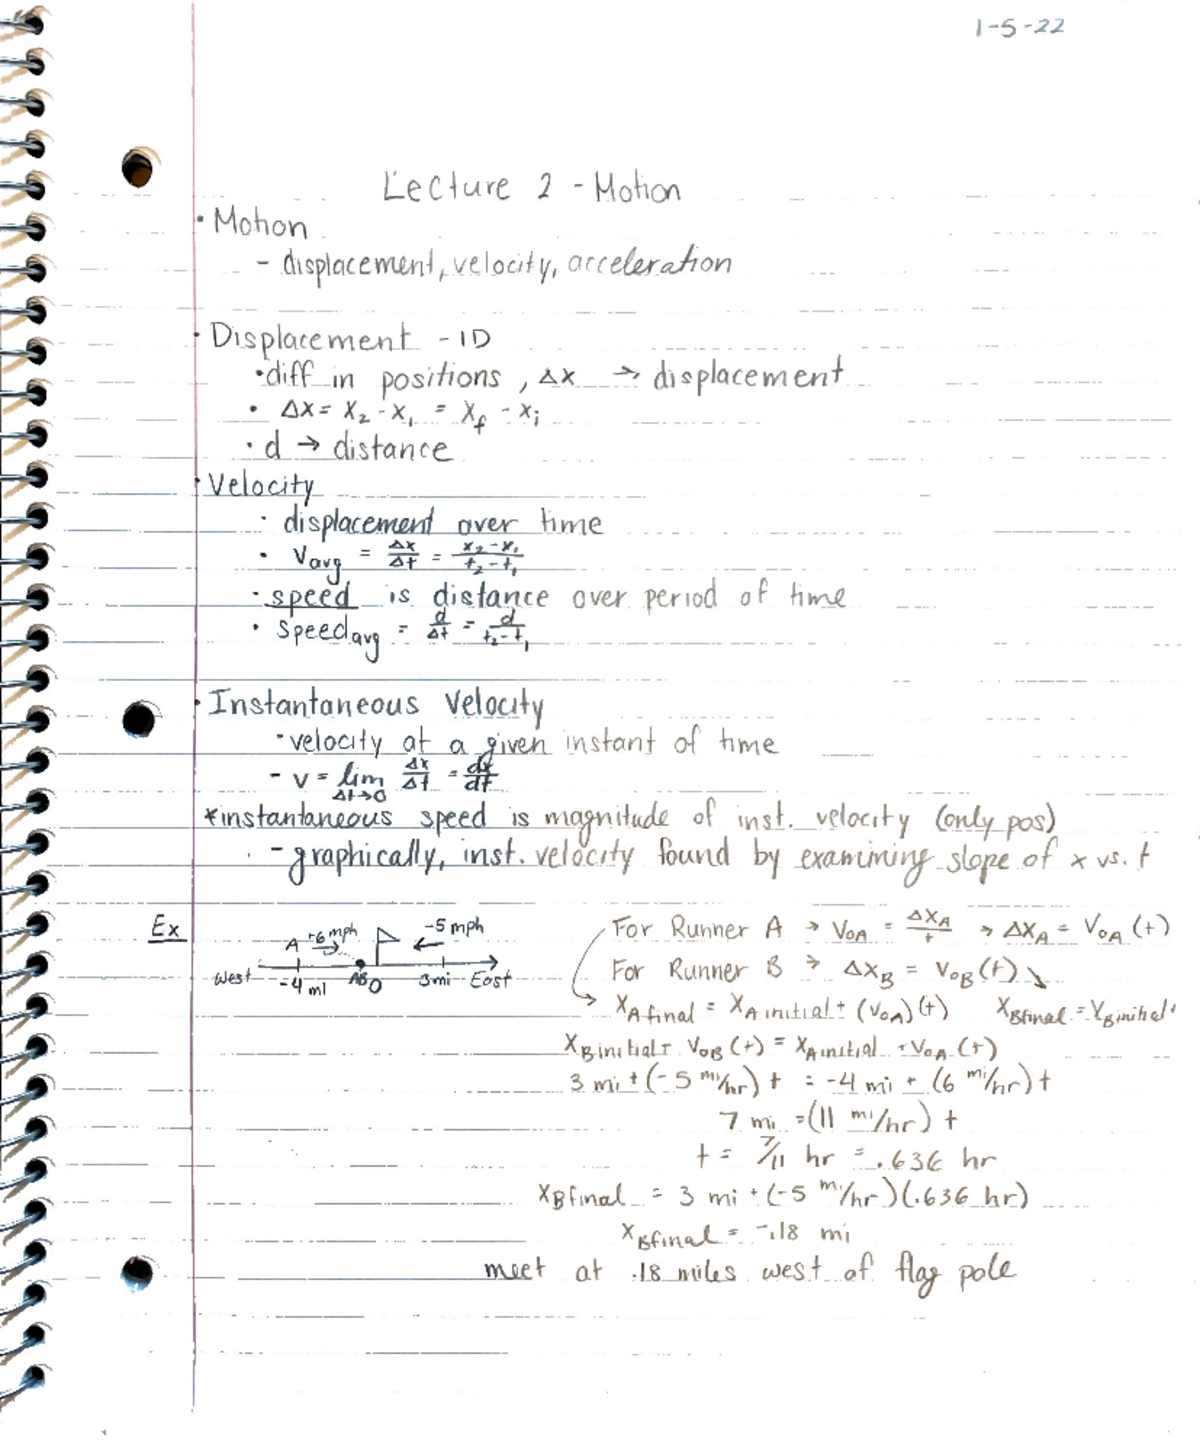 1-5-22
Lecture 2 - Motion
• Motion
- displacement, velocity, acceleration
• Displacement - 1D
• diff in positions, Δx → displacement
• Δx = x₂ - x₁ = x_f - x_i
• d → distance
• Velocity
• displacement over time
• V_avg = Δx/Δt = (x₂-x₁)/(t₂-t₁)
• speed is distance over period of time
• speed_avg = d/Δt = d/(t₂-t₁)
• Instantaneous Velocity
• velocity at a given instant of time
- v = lim Δt→0 Δx/Δt = dx/dt
*instantaneous speed is magnitude of inst. velocity (only pos)
- graphically, inst. velocity found by examining slope of x vs. t
Ex
A +6 mph -5 mph
West -4 mi AB 0 3mi East
For Runner A → V₀A = ΔX_A/t → ΔX_A = V₀A (t)
For Runner B → ΔX_B = V₀B (t)
X_A final = X_A initial + (V₀A)(t) X_Bfinal = X_B initial +
X_B initial + V₀B (t) = X_A initial + V₀A (t)
3 mi + (-5 mi/hr) t = -4 mi + (6 mi/hr) t
7 mi = (11 mi/hr) t
t = 7/11 hr = .636 hr
X_Bfinal = 3 mi + (-5 mi/hr)(.636 hr)
X_Bfinal = -.18 mi
meet at .18 miles west of flag pole